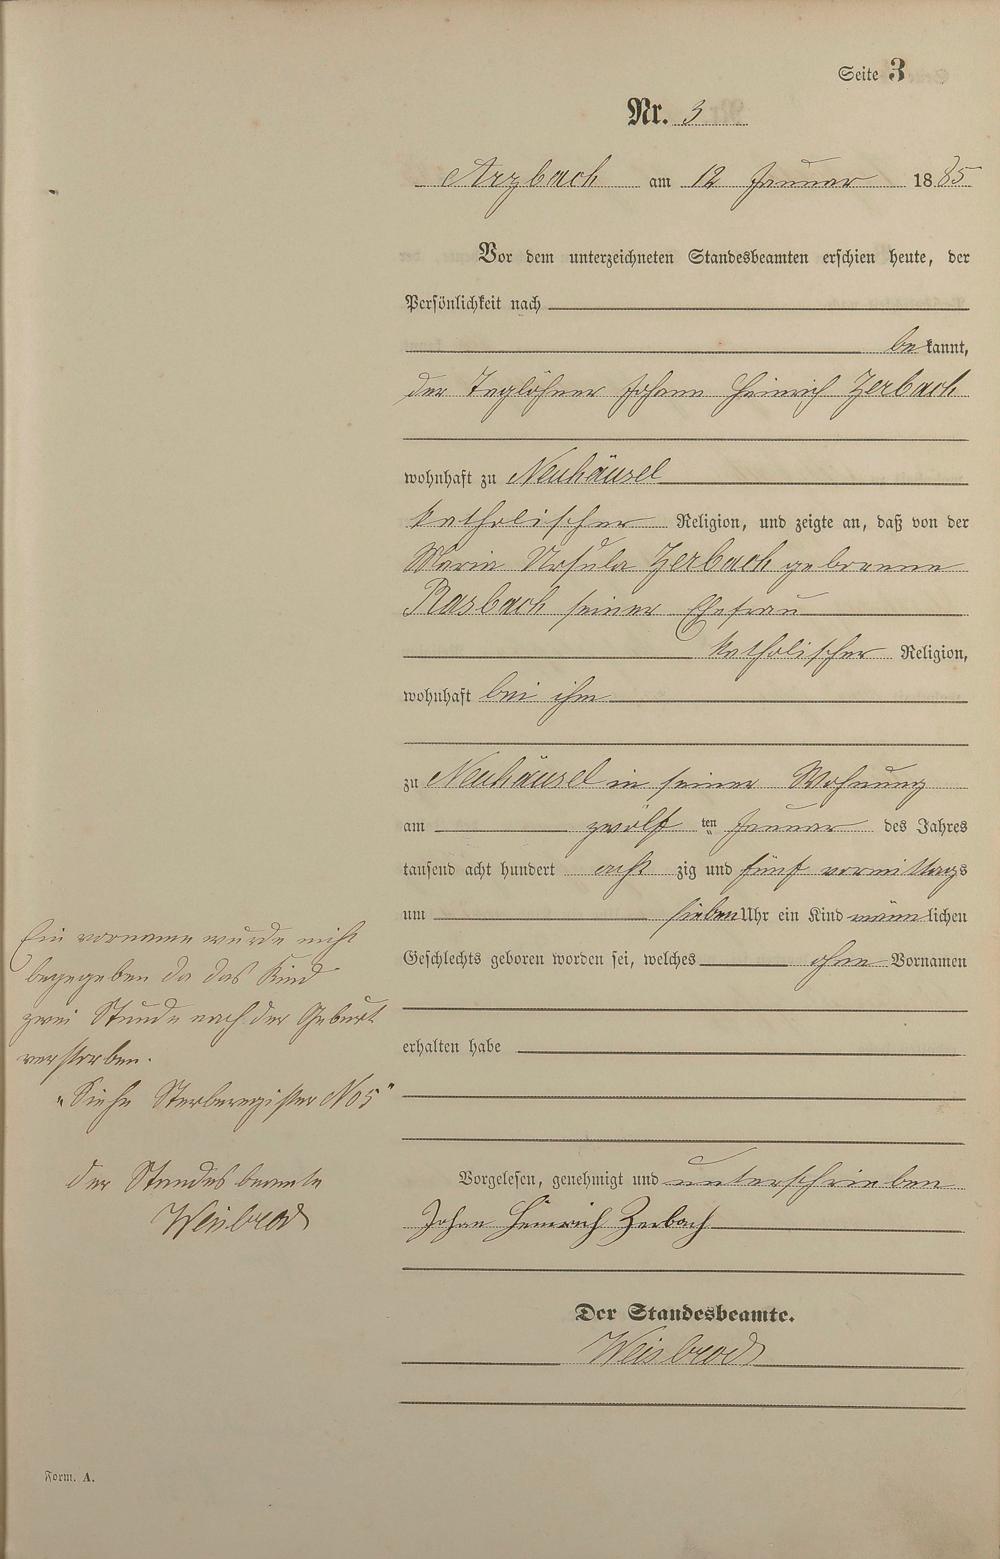 Seite 3
Nr. 3
Arzbach am 12 Januar 1885
Vor dem unterzeichneten Standesbeamten erschien heute, der
Persönlichkeit nach
bekannt,
der Taglöhner Johann Heinrich Zerbach
wohnhaft zu Neuhäusel
katholischer Religion, und zeigte an, daß von der
Maria Ursula Zerbach geborenne
Rasbach seiner Ehefrau
katholischer Religion,
wohnhaft bei ihm
zu Neuhäusel in seiner Wohnung
am zwölf ten Januar des Jahres
tausend acht hundert acht zig und fünf vormittags
um sieben Uhr ein Kind männlichen
Geschlechts geboren worden sei, welches ohne Vornamen
erhalten habe
Ein vorname wurde nicht
begegeben da das Kind
zwei Stunde nach der Geburt
verstorben.
"Siehe Sterberegister No 5"
der Standesbeamte
Weisbrod
Vorgelesen, genehmigt und unterschrieben
Johan Heinrich Zerbach
Der Standesbeamte.
Weisbrod
Form. A.